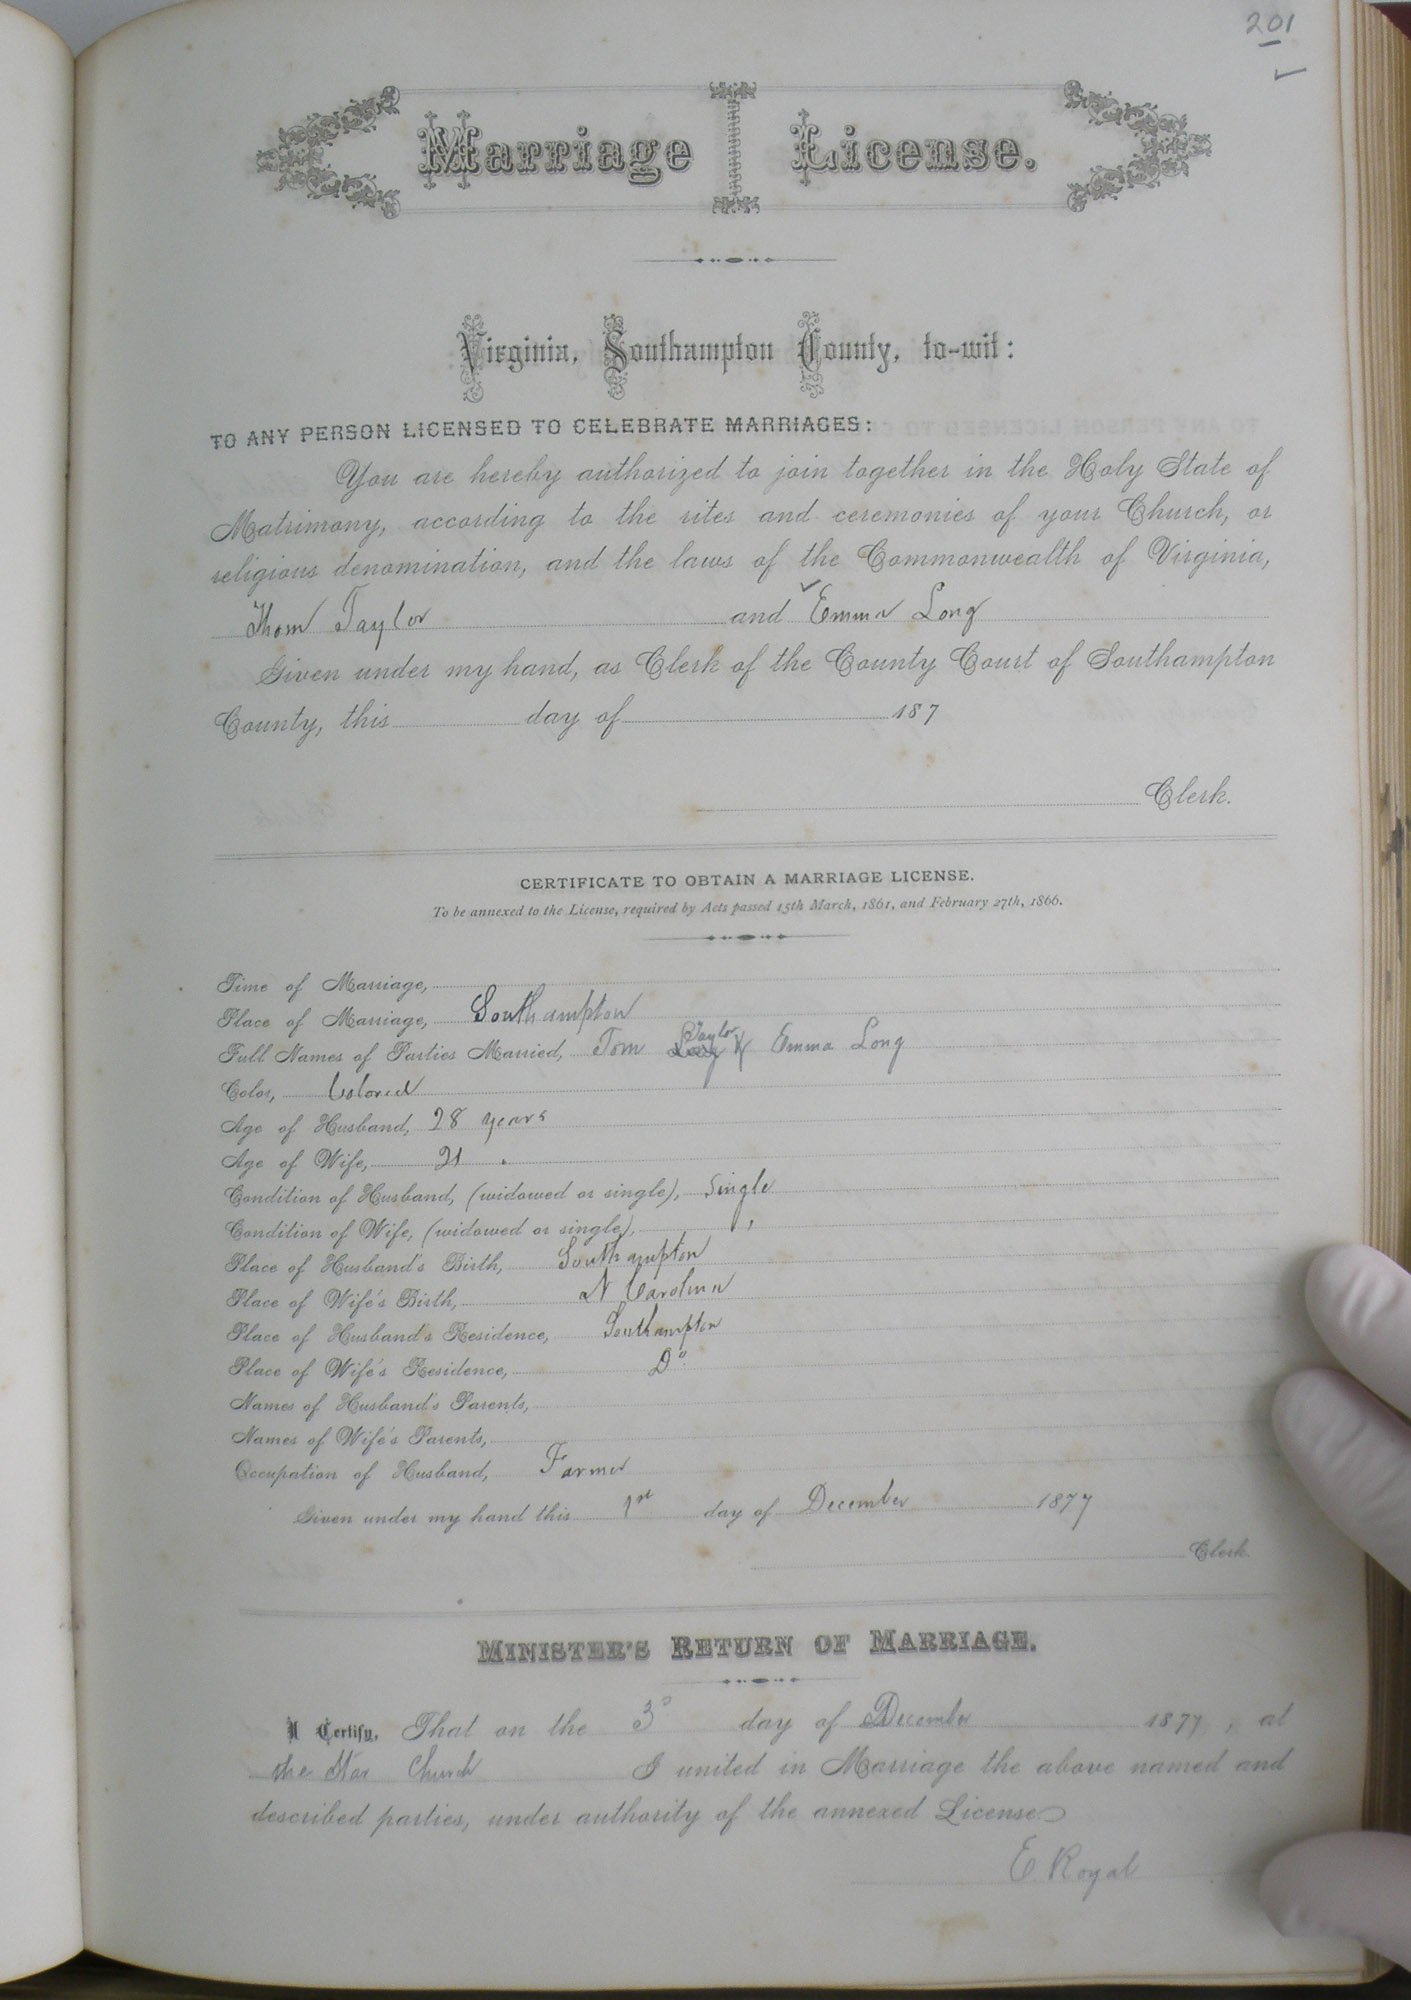 201
Marriage License.
Virginia, Southampton County, to-wit:
TO ANY PERSON LICENSED TO CELEBRATE MARRIAGES:
You are hereby authorized to join together in the Holy State of
Matrimony, according to the rites and ceremonies of your Church, or
religious denomination, and the laws of the Commonwealth of Virginia,
Thom Taylor and Emma Long
Given under my hand, as Clerk of the County Court of Southampton
County, this day of 187
Clerk.
CERTIFICATE TO OBTAIN A MARRIAGE LICENSE.
To be annexed to the License, required by Acts passed 15th March, 1861, and February 27th, 1866.
Time of Marriage,
Place of Marriage, Southampton
Full Names of Parties Married, Tom Taylor & Emma Long
Color, Colored
Age of Husband, 28 years
Age of Wife, 21 "
Condition of Husband, (widowed or single), Single
Condition of Wife, (widowed or single), "
Place of Husband's Birth, Southampton
Place of Wife's Birth, N Carolina
Place of Husband's Residence, Southampton
Place of Wife's Residence, Do
Names of Husband's Parents,
Names of Wife's Parents,
Occupation of Husband, Farmer
Given under my hand this 1st day of December 1877
Clerk.
MINISTER'S RETURN OF MARRIAGE.
I Certify, That on the 3d day of December 1877, at
the Star Church I united in Marriage the above named and
described parties, under authority of the annexed License.
E. Royal